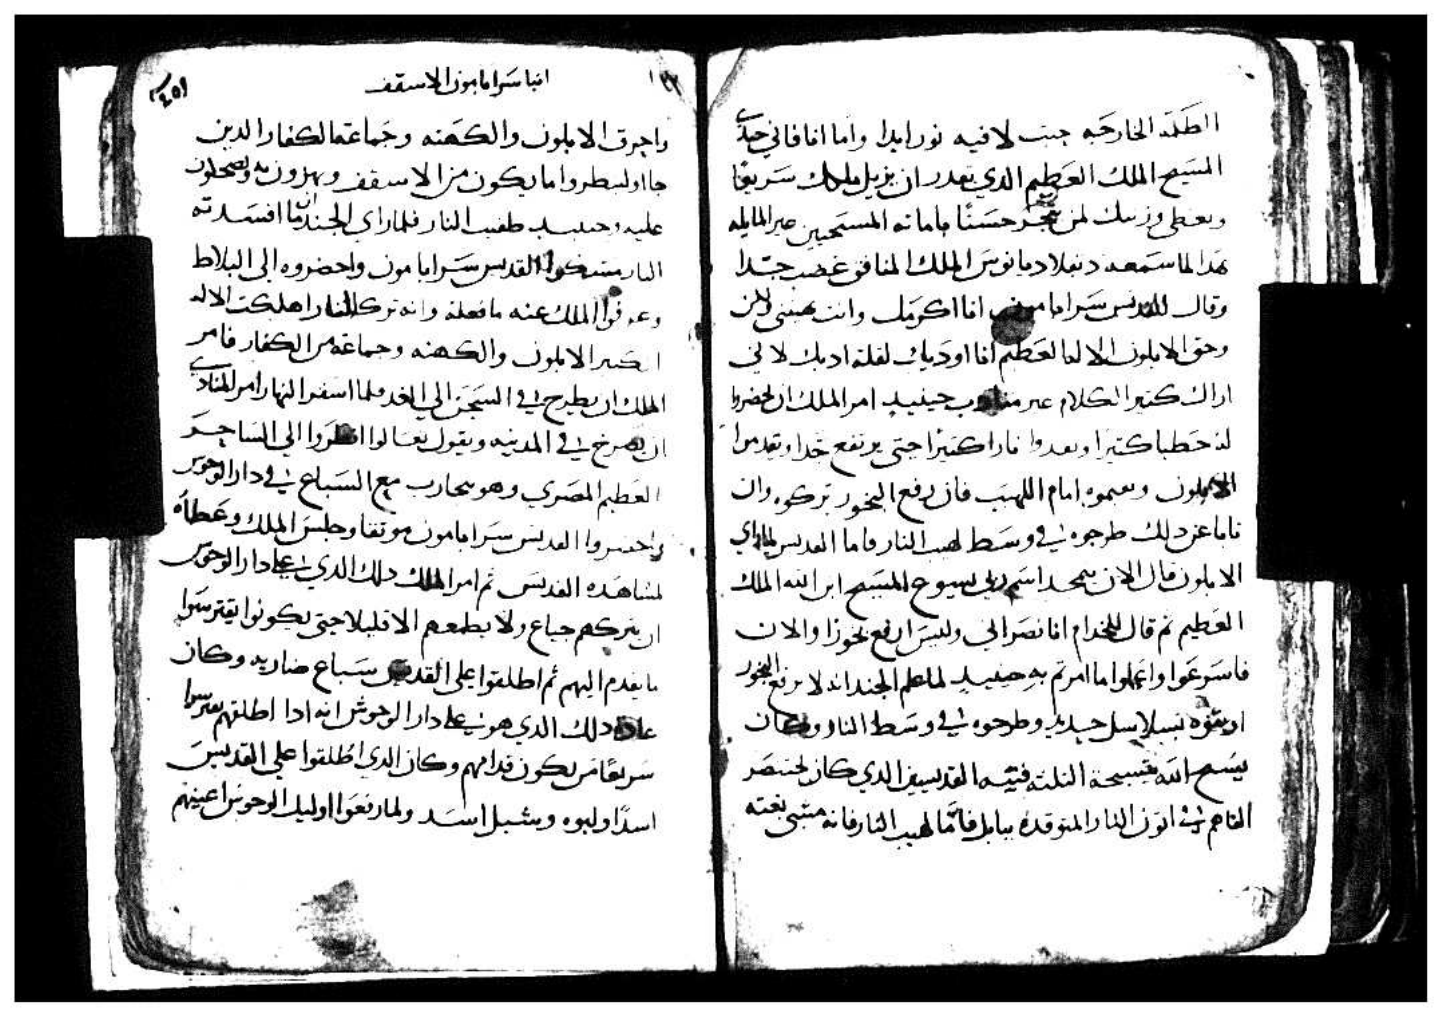 الظلمه الخارجه حيت لا فيه نور ابدا واما انا فاني جندي
المسيح الملك العظيم الذي يقدر ان يزيل ملكك سريعًا
ويعطي وزيرك لمن حسنًا بامانه المسيحيين غير المايله
هدا لما سمعه دقلاديانوس الملك المنافق غضب جدا
وقال للقديس سرابامون انا اكرمك وانت تهينني لاكن
وحق الابلون الالاه العظيم انا اوديك لقلة ادبك لاني
اراك كتير الكلام غير حينيد امر الملك ان يحضروا
له حطبا كتيرا ويقدوا نارا كتيرًا حتى يرتفع جدا ويقدموا
الابلون ويقيموه امام اللهيب فان رفع البخور تركوه وان
تابا عن دلك طرحوه في وسط لهيب النار فاما القديس لما راي
الابلون قال الان يتمجد اسم ربي يسوع المسيح ابن الله الملك
العظيم تم قال للخدام انا نصراني وليس ارفع بخورًا والان
فاسرعوا واعملوا ما امرتم به حينيد لما علم الجند انه لا يرفع البخور
اوتقوه بسلاسل حديد وطرحوه في وسط النار وكان
يسبح الله بتسبحة التلته فتيه القديسين الدي كان بختنصر
القاهم في اتون النار المتوقده ببابل فاما لهيب النار فانه مشي بغته
انبا سرابامون الاسقف
واحرق الابلون والكهنه وجماعة الكفار الدين
جااو لينظروا ما يكون من الاسقف ويهزون به ويضحكون
عليه وحينيد طفيت النار فلما راي الجند ان ما افسدته
النار مسكوا القديس سرابامون واحضروه الى البلاط
وعرفوا الملك عنه ما فعله وانه ترك النار اهلكت الاله
الكبير الابلون والكهنه وجماعة من الكفار فامر
الملك ان يطرح في السجن الى الغد فلما اسفر النهار امر المنادي
ان يصرخ في المدينه ويقول تعالوا انظروا الى الساحر
العظيم المصري وهو يحارب مع السباع في دار الوحوش
واحضروا القديس سرابامون موتقا وجلس الملك وعظماه
لمشاهدة القديس تم امر الملك دلك الدي على دار الوحوش
ان يتركهم جياع ولا يطعمهم الا قليلا حتى يكونوا يفترسوا
ما يقدم اليهم تم اطلقوا على القديس سباع ضاريه وكان
عادة دلك الدي هو على دار الوحوش انه ادا اطلقهم يفترسوا
سريعًا من يكون قدامهم وكان الدي اطلقوا على القديس
اسدًا ولبوه وشبل اسد ولما رفعوا اوليك الوحوش اعينهم